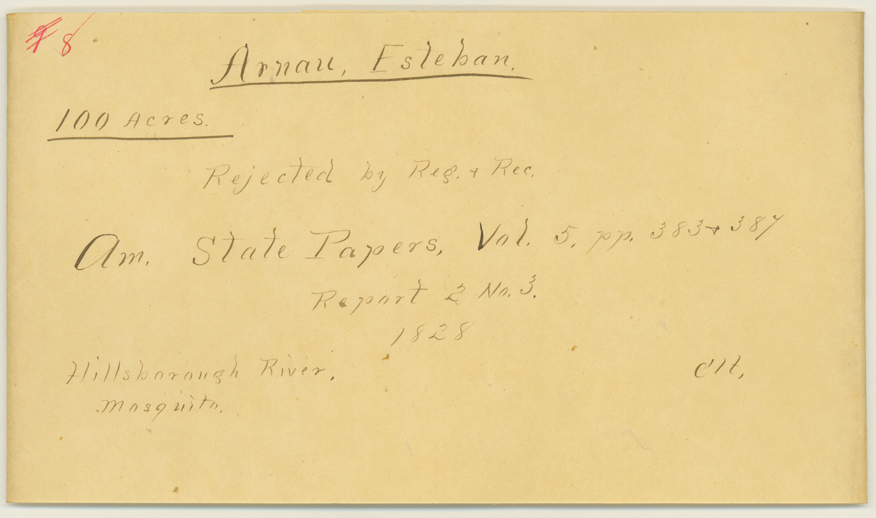 8
Arnau, Esteban.
100 Acres.
Rejected by Reg. & Rec.
Am. State Papers, Vol. 5, pp. 383 & 387
Report 2 No. 3.
1828
Hillsborough River,
Mosquito.